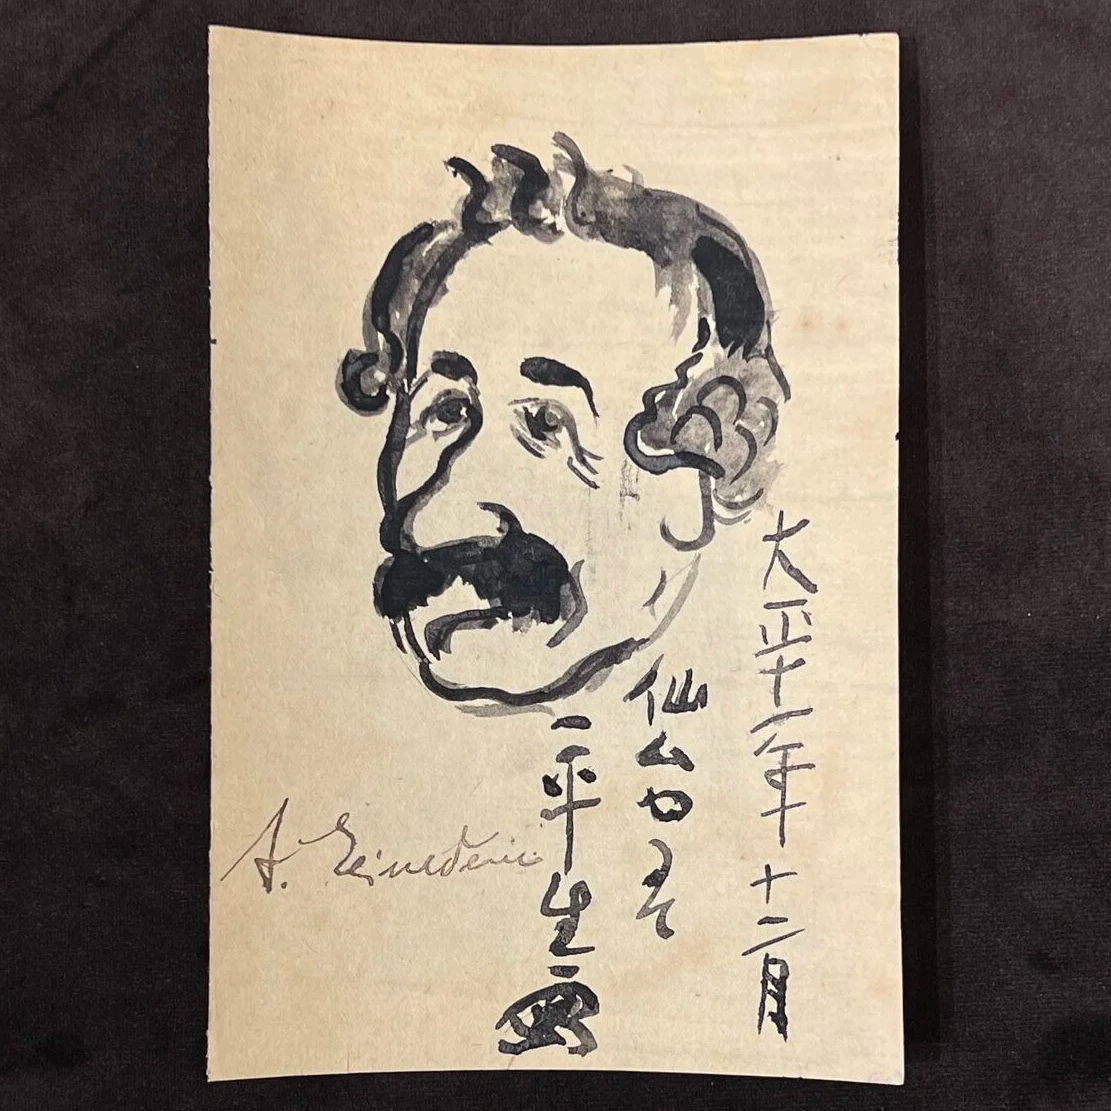 大正十一年十二月
仙台ニて
一平生画
A. Einstein